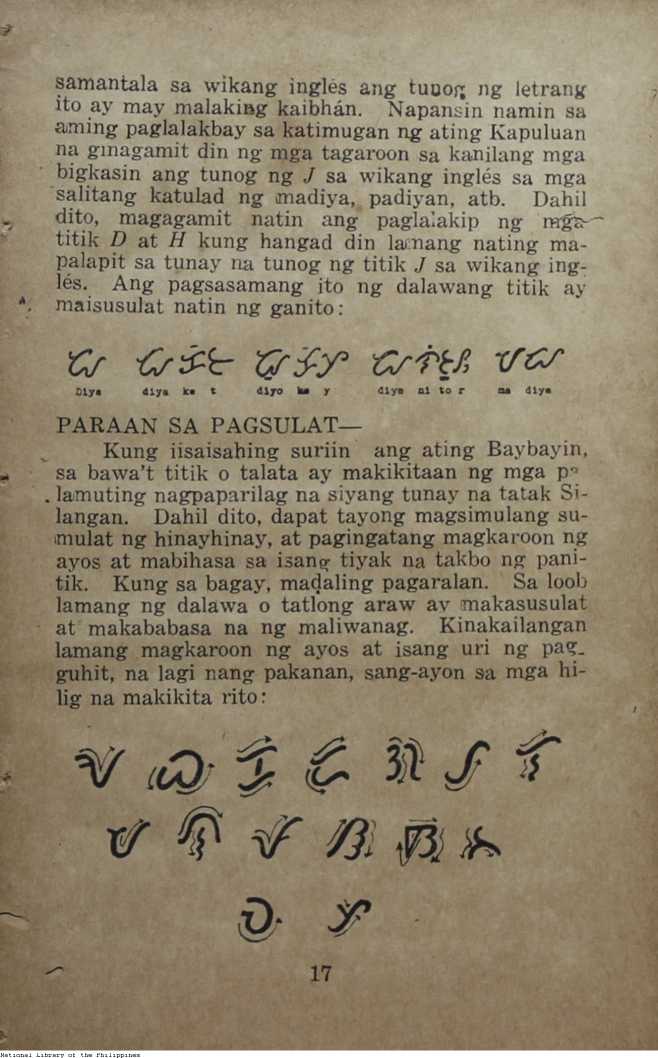 samantala sa wikang inglés ang tunog ng letrang
ito ay may malaking kaibhán. Napansin namin sa
aming paglalakbay sa katimugan ng ating Kapuluan
na ginagamit din ng mga tagaroon sa kanilang mga
bigkasin ang tunog ng J sa wikang inglés sa mga
salitang katulad ng madiya, padiyan, atb. Dahil
dito, magagamit natin ang paglalakip ng mga
titik D at H kung hangad din lamang nating ma-
palapit sa tunay na tunog ng titik J sa wikang ing-
lés. Ang pagsasamang ito ng dalawang titik ay
maisusulat natin ng ganito:
Diya diya ke t diyo ke y diya ni to r ma diya
PARAAN SA PAGSULAT—
Kung iisaisahing suriin ang ating Baybayin,
sa bawa't titik o talata ay makikitaan ng mga pa
lamuting nagpaparilag na siyang tunay na tatak Si-
langan. Dahil dito, dapat tayong magsimulang su-
mulat ng hinayhinay, at pagingatang magkaroon ng
ayos at mabihasa sa isang tiyak na takbo ng pani-
tik. Kung sa bagay, madaling pagaralan. Sa loob
lamang ng dalawa o tatlong araw ay makasusulat
at makababasa na ng maliwanag. Kinakailangan
lamang magkaroon ng ayos at isang uri ng pag-
guhit, na lagi nang pakanan, sang-ayon sa mga hi-
lig na makikita rito:
17
National Library of the Philippines